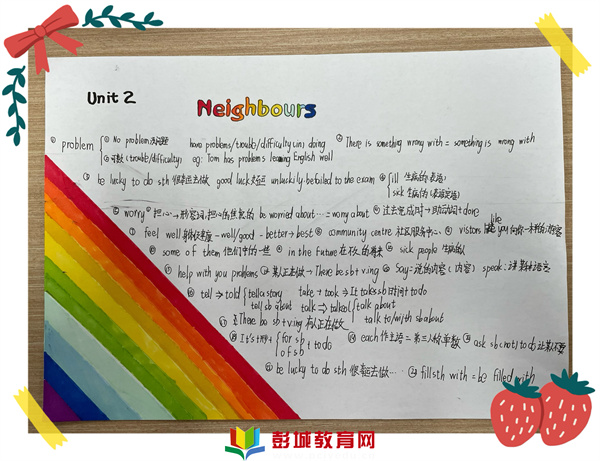 Unit 2
Neighbours
① problem ① No problem没问题 have problems/trouble/difficulty (in) doing ② There is something wrong with = something is wrong with
② 可数 (trouble/difficulty) eg: Tom has problems learning English well
③ be lucky to do sth 很幸运去做 good luck好运 unluckily be failed to the exam ④ ill 生病的(表语)
sick 生病的(表语定语)
⑤ worry 担心→形容词,担心的焦虑的 be worried about…= worry about ⑥ 过去完成时→助动词+done
⑦ feel well 身体健康 – well/good – better→best ⑧ community centre 社区服务中心 ⑨ vistors like you 像你一样的游客
⑩ some of them 他们中的一些 in the future 在不久的将来 sick people 生病的人
help with you problems 某人正在做→There be sb+ving Say=说的内容(内容) speak:讲某种语言
tell→told tell a story take→took→It takes sb 时间+to do
tell sb about talk→talked talk about
There be sb+ving 有人正在做 talk to/with sb about
It's+adj+ for sb +to do each作主语=第三人称单数 ask sb (not) to do
of sb
be lucky to do sth 很幸运去做… fill sth with = be filled with
彭城教育网